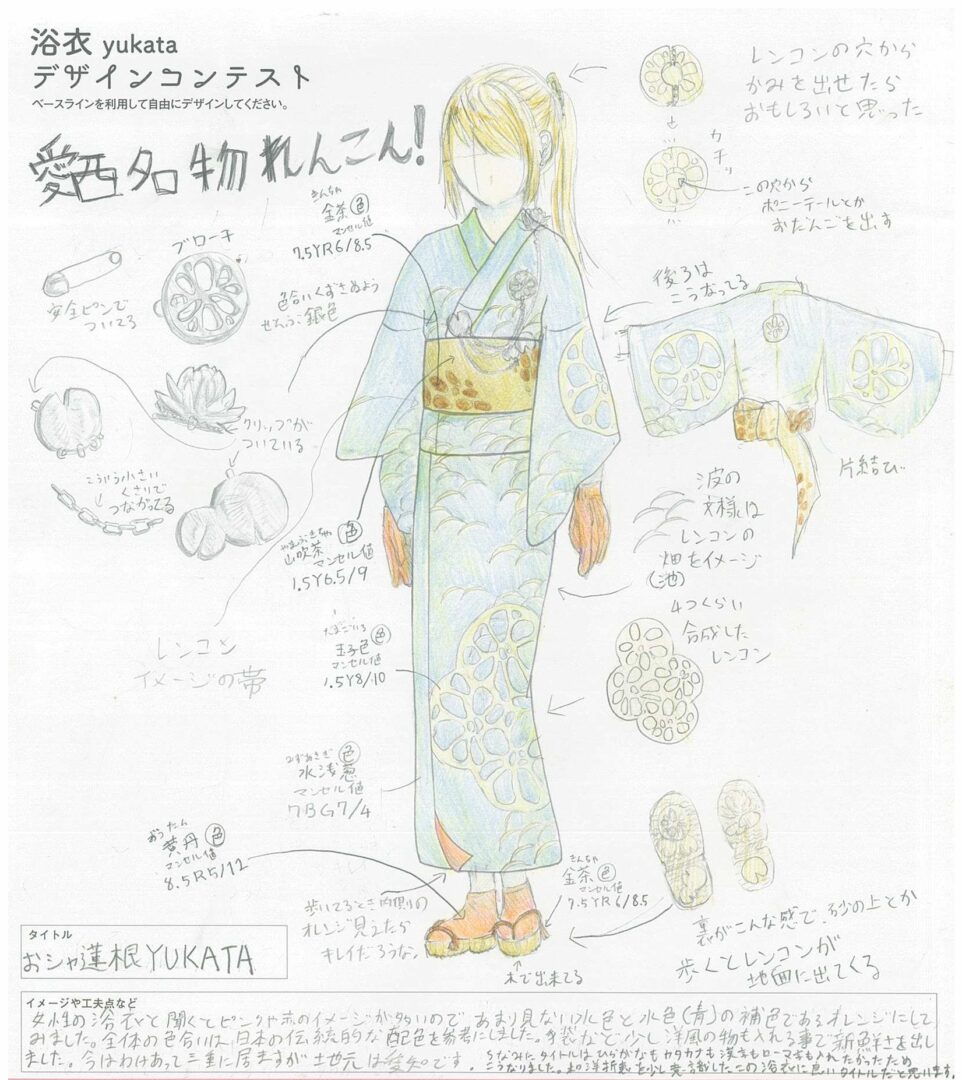 浴衣 yukata
デザインコンテスト
ベースラインを利用して自由にデザインしてください。
愛西名物れんこん!
レンコンの穴から
かみを出せたら
おもしろいと思った
カチッ
この穴から
ポニーテールとか
おだんごを出す
きんちゃ
金茶 色
マンセル値
7.5YR6/8.5
ブローチ
安全ピンで
ついてる
色合いくずさぬよう
ぜんぶ銀色
後ろは
こうなってる
片結び
クリップが
ついている
こういう小さい
くさりで
つながってる
波の
文様は
レンコンの
畑をイメージ
(池)
やまぶきちゃ 色
山吹茶
マンセル値
1.5Y6.5/9
4つくらい
合成した
レンコン
レンコン
イメージの帯
たまごいろ
玉子色 色
マンセル値
1.5Y8/10
みずあさぎ 色
水浅葱
マンセル値
7BG7/4
おうたん
黄丹 色
マンセル値
8.5R5/12
歩いてるとき内側の
オレンジ見えたら
キレイだろうな。
きんちゃ
金茶 色
マンセル値
7.5YR6/8.5
木で出来てる
裏がこんな感で、砂の上とか
歩くとレンコンが
地面に出てくる
タイトル
おシャ蓮根YUKATA
イメージや工夫点など
女性の浴衣と聞くとピンクや赤のイメージが多いので、あまり見ない水色と水色(青)の補色であるオレンジにして
みました。全体の色合いは日本の伝統的な配色を参考にしました。手袋など少し洋風の物も入れる事で新鮮さを出し
ました。今はわけあって三重に居ますが土地元は愛知です。ちなみにタイトルはひらがなもカタカナも漢字もローマ字も入れたかったため
こうなりました。和洋折衷を少し意識したこの浴衣に良いタイトルだと思います。